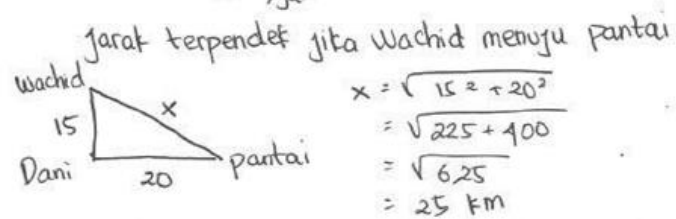 Jarak terpendek jika Wachid menuju pantai
Wachid
15
x
Dani
20
pantai
x = √15² + 20²
= √225 + 400
= √625
= 25 km